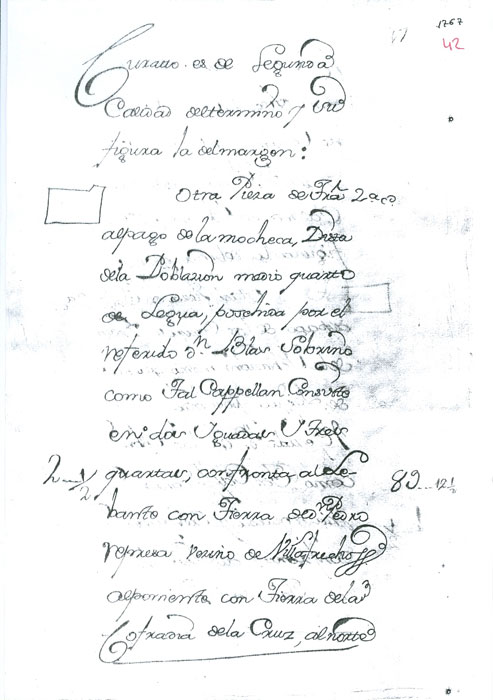 1767
42
Curatto. es de Segunda
Calidad deltermino y su
figura la delmargen:
Otra Pieza de Tra 2a
alpago de la mocheca, Dista
dela Poblazion medio quarto
de Legua, posehida por el
referido Dn. Blas Sobrino
como Tal Cappellan Consiste
en dos Yguadas Y Tres
2 1/2 quartas, confronta al Le- 82 12 1/2
bante con Tierra de Dn Pedro
represa vezino de Villafrechos
alponiente con Tierra dela
Cofradia dela Cruz, alnorte